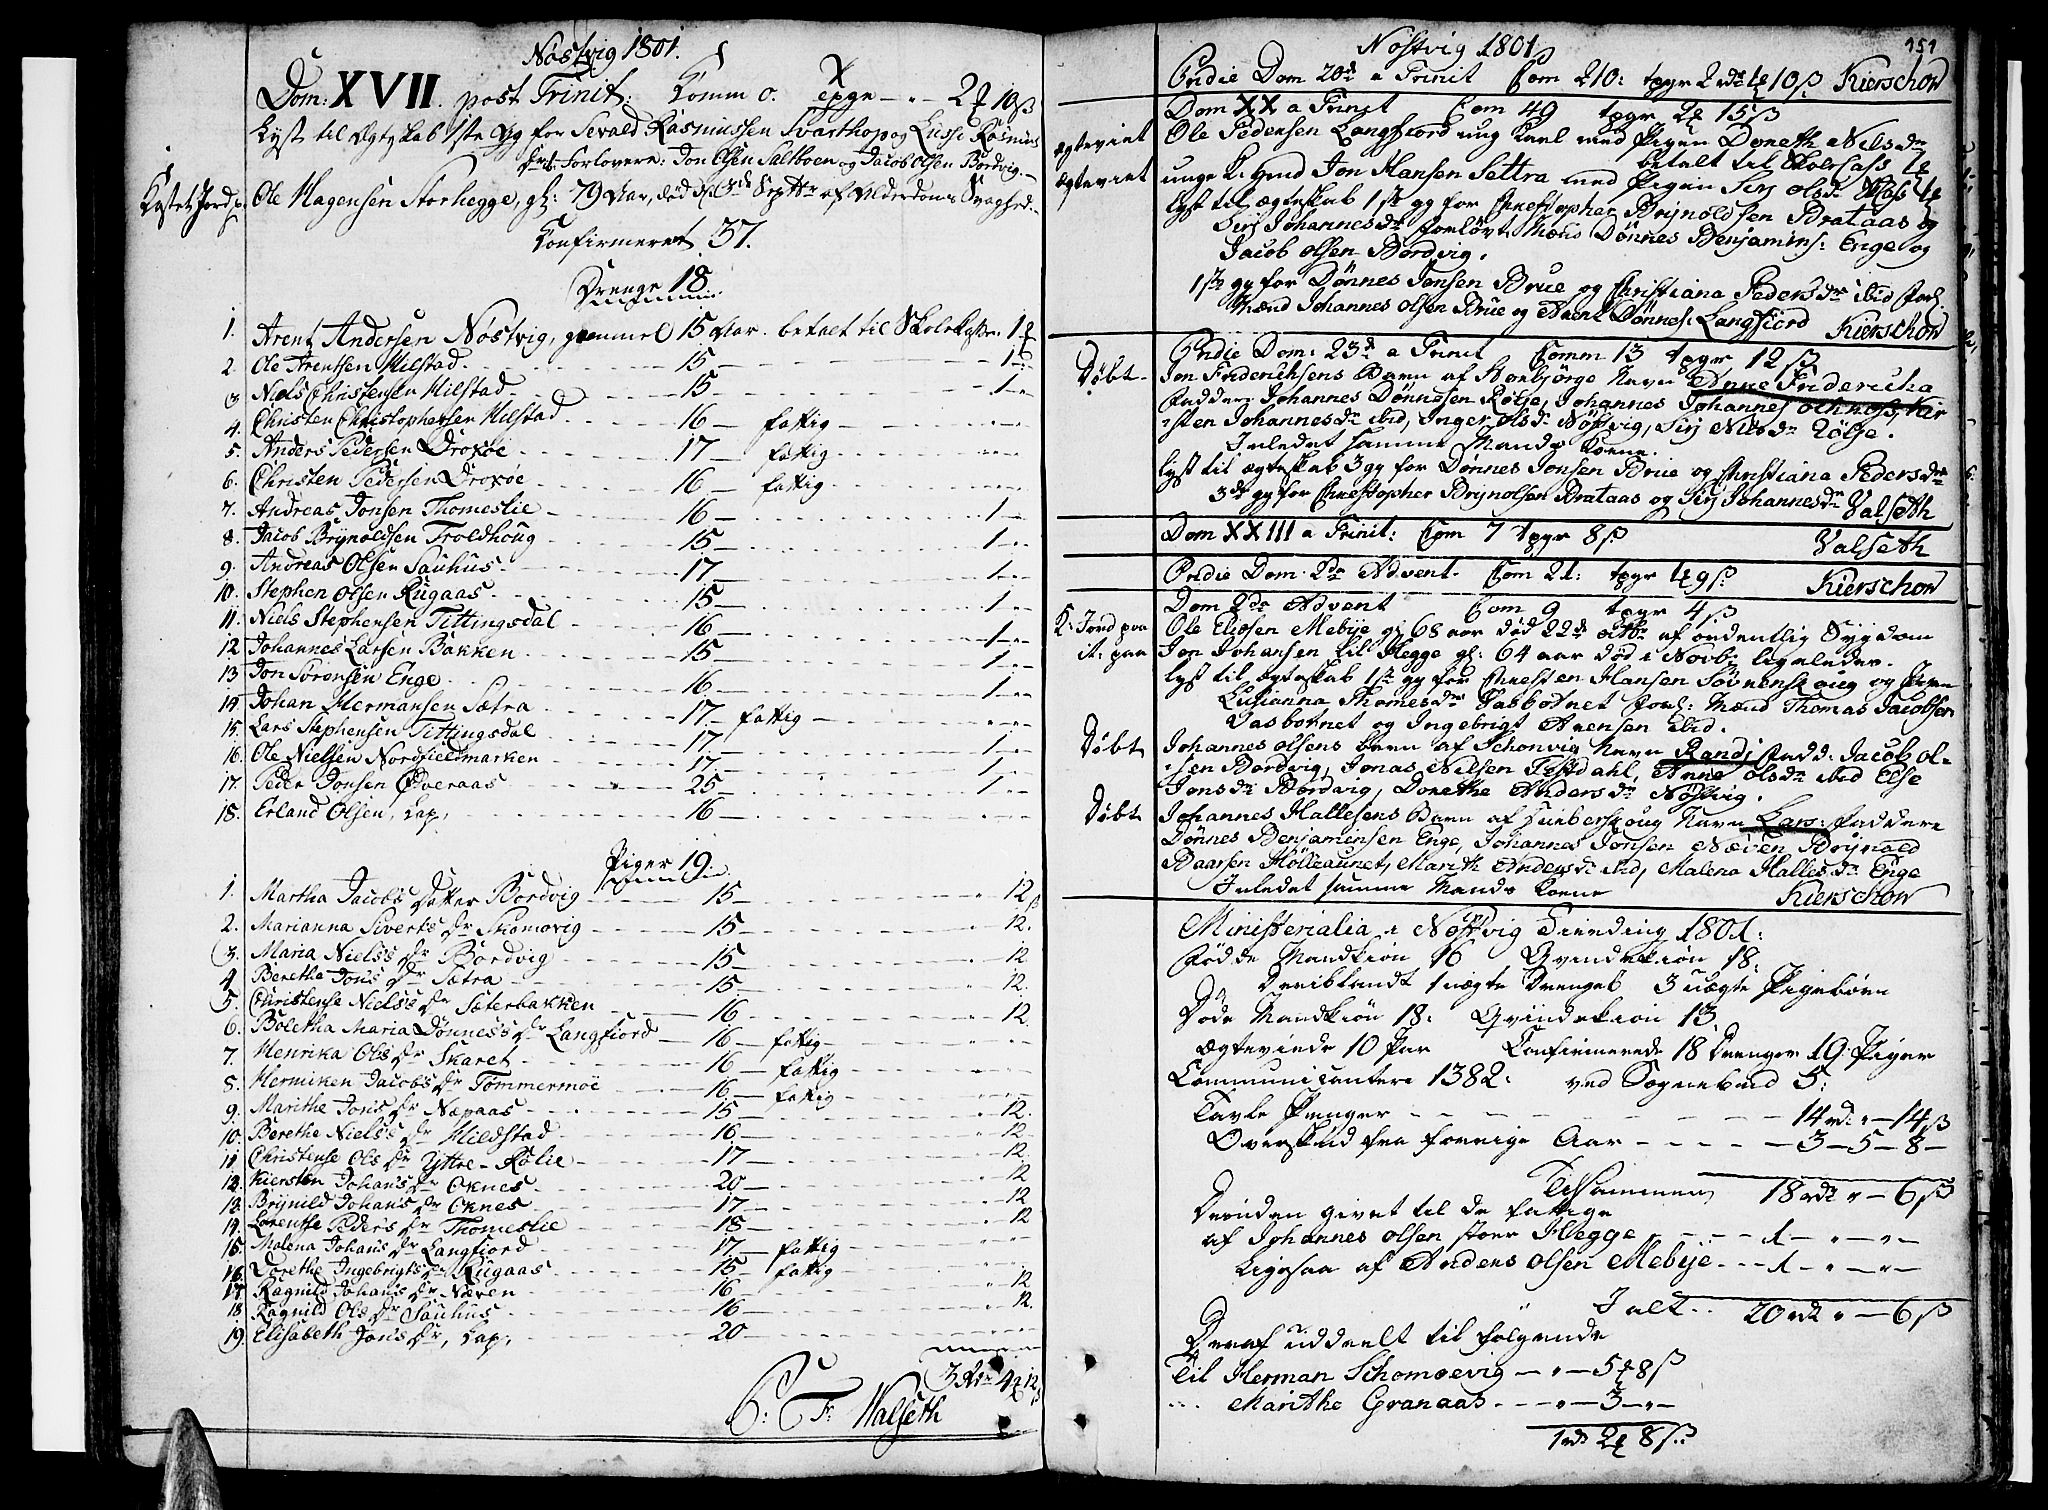 Nøstvig 1801.
Dom: XVII. post Trinit: Komm 0. tpgr — " - 2 10 ß
Lyst til Egteskab 1ste Gg for Sevald Rasmussen Svarthop og Lusse Rasmus
dr. Forlovere: Jon Olsen Saltboen og Jacob Olsen Bordvig.
Kastet Jord p.
Ole Hagensen Storhegge, gl: 79 Aar, død d. Septbr af Alderdoms Svaghed.
Konfirmeret 37.
Drenge 18.
1. Arent Andersen Nøstvig, gammel 15 Aar. betalt til Skolekassen 1
2. Ole Arentsen Hilstad 15 — 1
3. Niels Christensen Hilstad 15 — 1
4. Christen Christophersen Hilstad 16 — fattig
5. Anders Pedersen Droxøe 17 — fattig
6. Christen Pedersen Droxøe 16 — fattig
7. Andreas Jonsen Thomeslie 16 — 1
8. Jacob Brynoldsen Troldhoug 15 — 1
9. Andreas Olsen Sauhus 17 — 1
10. Stephen Olsen Rugaas 15 — 1
11. Niels Stephensen Tittingsdal 16 — 1
12. Johannes Larsen Bakken 15 — 1
13. Jon Sørensen Enge 16 — 1
14. Johan Hermansen Sætra 17 — fattig —
15. Lars Stephensen Tittingsdal 17 — 1
16. Ole Nielsen Nordfieldmarken 17 — 1
17. Peder Jonsen Øveraas 25 — 1
18. Erland Olsen, Lap, 16 —
Piger 19.
1. Martha Jacobs Datter Bordvig 15 — 12 ß
2. Marianna Siverts Dr Skomovig 15 — 12.
3. Maria Niels's Dr Bordvig 15 — 12
4. Berethe Jons Dr Sætra 15 — 12.
5. Christense Niels's Dr Seterbakken 16 — 12.
6. Boletha Maria Dønness's Dr Langfiord — 16 — fattig
7. Henrika Ols Dr Skaret 16 — fattig
8. Herniken Jacobs Dr Tømmermøe 16 — fattig
9. Marithe Jons Dr Næpaas 15 — 12.
10. Berethe Niels's Dr Hildstad 16 — 12.
11. Christense Ols Dr Yttre-Rølie 17 — 12.
12. Kiersten Johans Dr Oknes 20 — 12
13. Brynild Johans Dr Oknes 17 — 12
14. Lorentse Peders Dr Thomeslie 18 — 12
15. Malena Johans Dr Langfiord 17 — fattig
16. Dorethe Ingebrigts Dr Rugaas 15 — fattig
17. Ragnild Johans Dr Næven 16 — 12.
18. Ragnild Ols Dr Sauhus 16 — 12.
19. Elisabeth Jons Dr, Lap, 20 —
3 4 12 ß
C: F: Walseth
Nøstvig 1801
151
Pridie Dom 20d a Trinit Com 210: tpgr 2 rdr 10 ß Kierschow
Dom XX a Trinit Com 49 tpgr 2 15 ß
ægteviet
Ole Pedersen Langfiord ung Karl med Pigen Doreth Nilsdr
betalt til Skole Cass
ægteviet
unge Jon Hansen Settra med Pigen Sirj Olsdr
lyst til ægteskab 1ste gg for Christopher Brynoldsen Brataas og
Sirj Johannesdr Forlovr. Mænd Dønnes Benjamins: Enge og
Jacob Olsen Bordvig.
1ste gg for Dønnes Jonsen Brue og Christiana Pedersdr ibid Forl.
Mænd Johannes Olsen Brue og Arent Dønnes: Langfiord Kierschow
Pridie Dom: 23d a Trinit Comm 13 tpgr 12 ß
Døbt
Jon Friderichsens Barn af Navn Anne Fridericha
Faddere Johannes Dønnesen Rølje, Johannes Johannes Kir
sten Johannesdr ibid, Inger Olsdr Nøstvig, Sirj Nilsdr Rølje.
Inledet samme Mands Kone.
lyst til ægteskab 3 gg for Dønnes Jonsen Brue og Christiana Pedersdr
3die gg for Christopher Brynolsen Brataas og Sirj Johannesdr Valseth
Dom XXIII a Trinit: Com 7 tpgr 8 ß Valseth
Pridie Dom. 2da Advent Com 21: tpgr 9 ß Kierschow
Dom 2da Advent Com 9 tpgr 4 ß
K: Jord paa
Ole Eliesen Mebye gl 68 aar død 22d octbr af ordentlig Sygdom
it: paa
Jon Johansen lil Hegge gl: 64 aar død i Novbr ligeledes.
lyst til ægteskab 1ste gg for Christen Hansen og Pigen
Lusianna Thomesdr Vasbotnet Forl: Mænd Thomas Jacobsen
Vasbotnet og Ingebrigt Arensen ibid.
Døbt
Johannes Olsens barn af Schonvig Navn Randj Fadd: Jacob Ol-
sen Bordvig, Jonas Nilsen Anne Olsdr ibid Else
Jonsdr Bordvig, Dorethe Andersdr Nøstvig.
Døbt
Johannes Hallesens Barn af Navn Lars: Faddere
Dønnes Benjaminsen Enge, Johannes Jonsen Næven Brynald
Baarsen Mølleaunet, Marith Andersdr ibid, Malena Hallesdr Enge
Inledet samme Mands Kone Kierschow
Ministerialia i Nøstvig Tiending 1801:
Fødde Mandkiøn 16 Qvindekiøn 18:
Deriblandt 1 uægte Drengeb 3 uægte Pigebørn
Døde Mandkiøn 18: Qvindekiøn 13
Ægteviede 10 Par Confirmerede 18 Drenger 19 Piger
Communicantere 1382: ved Sognebud 5:
Tavle Penger — 14 rd " — 14 ß
Overskud fra forrige Aar — 3 — 5 — 8 —
Tilsammen 18 rdr " — 6 ß
Desuden givet til de fattige
af Johannes Olsen stoer Hegge — 1 — " — " —
Ligesaa af Anders Olsen Mebye — 1 — " — " —
I alt 20 rdr " — 6 ß
Deraf uddeelt til følgende
Til Herman Schomoevig — " — 5 8 ß
Marithe Granaas — " — 3 — " —
1 rdr 2 8 ß